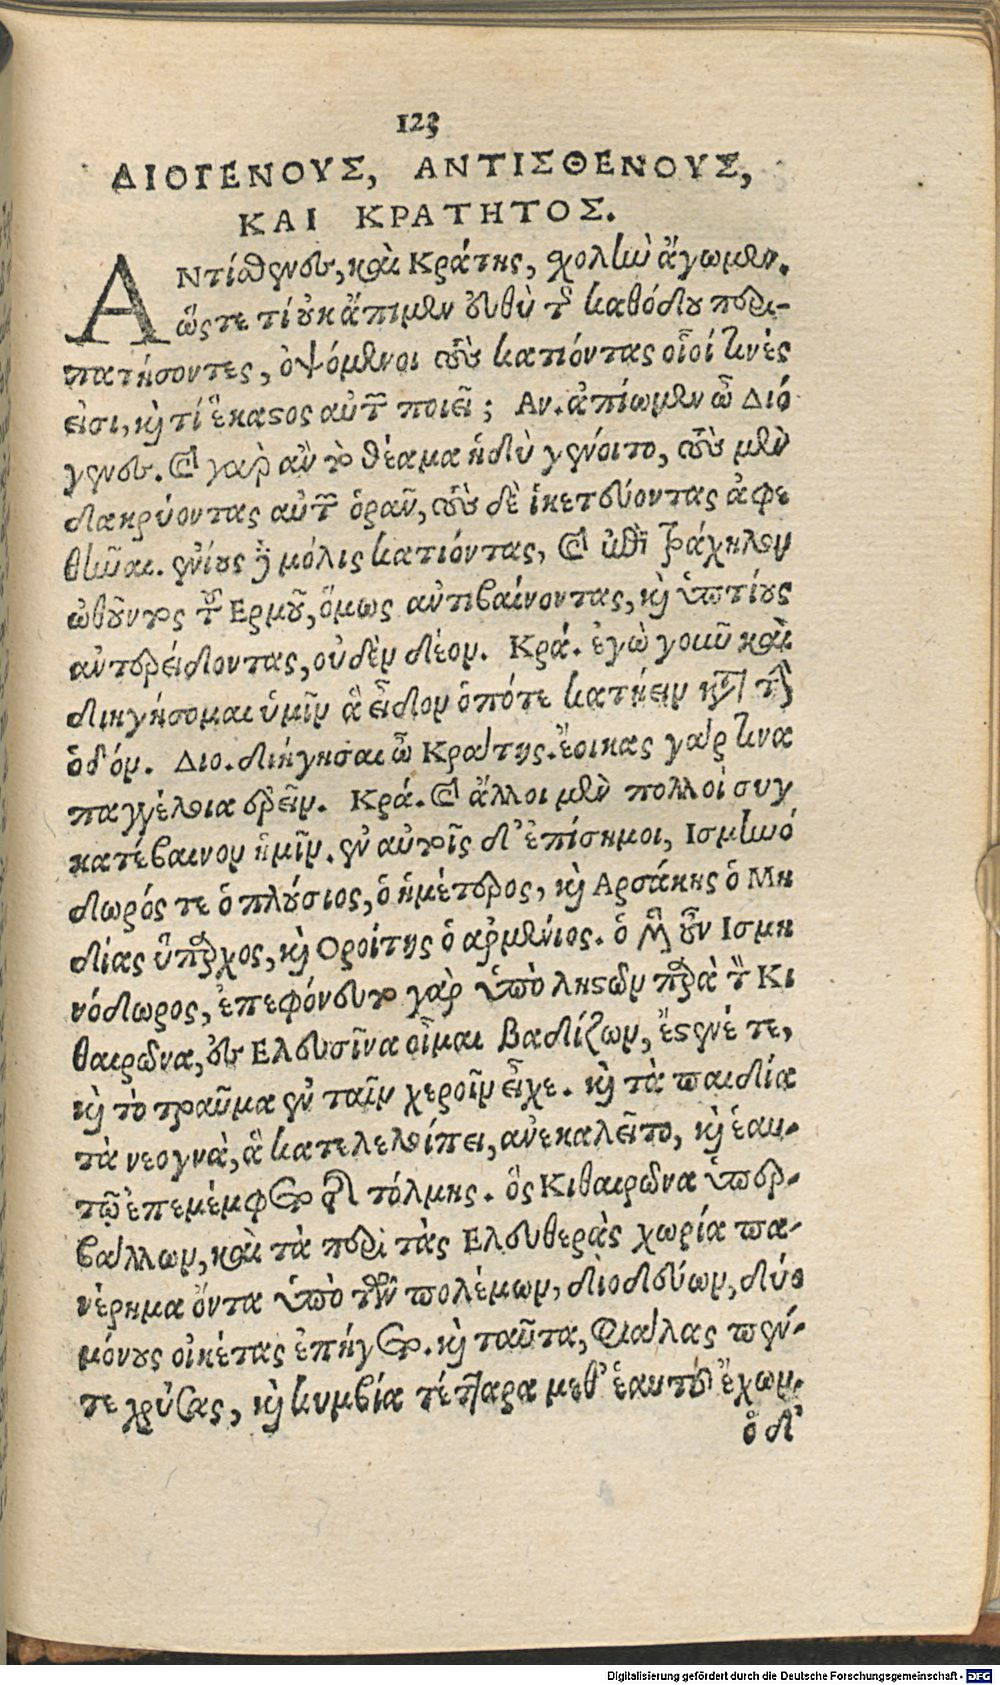 123
ΔΙΟΓΕΝΟΥΣ, ΑΝΤΙΣΘΕΝΟΥΣ,
ΚΑΙ ΚΡΑΤΗΤΟΣ.
ΑΝτίσθενες, καὶ Κράτης, χολὴν ἄγωμεν.
ὥςτε τί οὐκ ἄπιμεν εὐθὺ τῆς καθόδου περι-
πατήσοντες, ὀψόμενοι τοὺς κατιόντας οἷοί τινές
εἰσι, καὶ τί ἕκαστος αὐτῶν ποιεῖ; Αν. ἀπίωμεν ὦ Διό
γενες. καὶ γαρ ἂν τὸ θέαμα ἡδὺ γένοιτο, τοὺς μὲν
δακρύοντας αὐτῶν ὁρᾶν, τοὺς δὲ ἱκετεύοντας ἀφε
θῆναι. ἐνίους δὲ μόλις κατιόντας, καὶ ἐπὶ τράχηλον
ὠθοῦντος τοῦ Ερμοῦ, ὅμως ἀντιβαίνοντας, καὶ ὑπτίους
ἀντερείδοντας, οὐδὲν δέον. Κρά. ἐγὼ γοῦν καὶ
διηγήσομαι ὑμῖν ἃ εἶδον ὁπότε κατῄειν κατὰ τὴν
ὁδόν. Διο. διήγησαι ὦ Κράτης. ἔοικας γάρ τινα
παγγέλοια ἐρεῖν. Κρά. καὶ ἄλλοι μὲν πολλοὶ συγ
κατέβαινον ἡμῖν. ἐν αὐτοῖς δ' ἐπίσημοι, Ισμηνό
δωρός τε ὁ πλούσιος, ὁ ἡμέτερος, καὶ Αρσάκης ὁ Μη
δίας ὕπαρχος, καὶ Οροίτης ὁ ἀρμένιος. ὁ μὲν οὖν Ισμη
νόδωρος, ἐπεφόνευτο γὰρ ὑπὸ ληστῶν παρὰ τὸν Κι
θαιρῶνα, ἐς Ελευσῖνα οἶμαι βαδίζων, ἔστενέ τε,
καὶ τὸ τραῦμα ἐν ταῖν χεροῖν εἶχε. καὶ τὰ παιδία
τὰ νεογνὰ, ἃ κατελελοίπει, ἀνεκαλεῖτο, καὶ ἑαυ-
τῷ ἐπεμέμφετο τῆς τόλμης. ὃς Κιθαιρῶνα ὑπερ-
βάλλων, καὶ τὰ περὶ τὰς Ελευθερὰς χωρία πα-
νέρημα ὄντα ὑπὸ τῶν πολέμων, διοδεύων, δύο
μόνους οἰκέτας ἐπήγετο. καὶ ταῦτα, φιάλας πέν-
τε χρύσας, καὶ κυμβία τέτταρα μεθ' ἑαυτοῦ ἔχων.
ὁ δ'
Digitalisierung gefördert durch die Deutsche Forschungsgemeinschaft - DFG